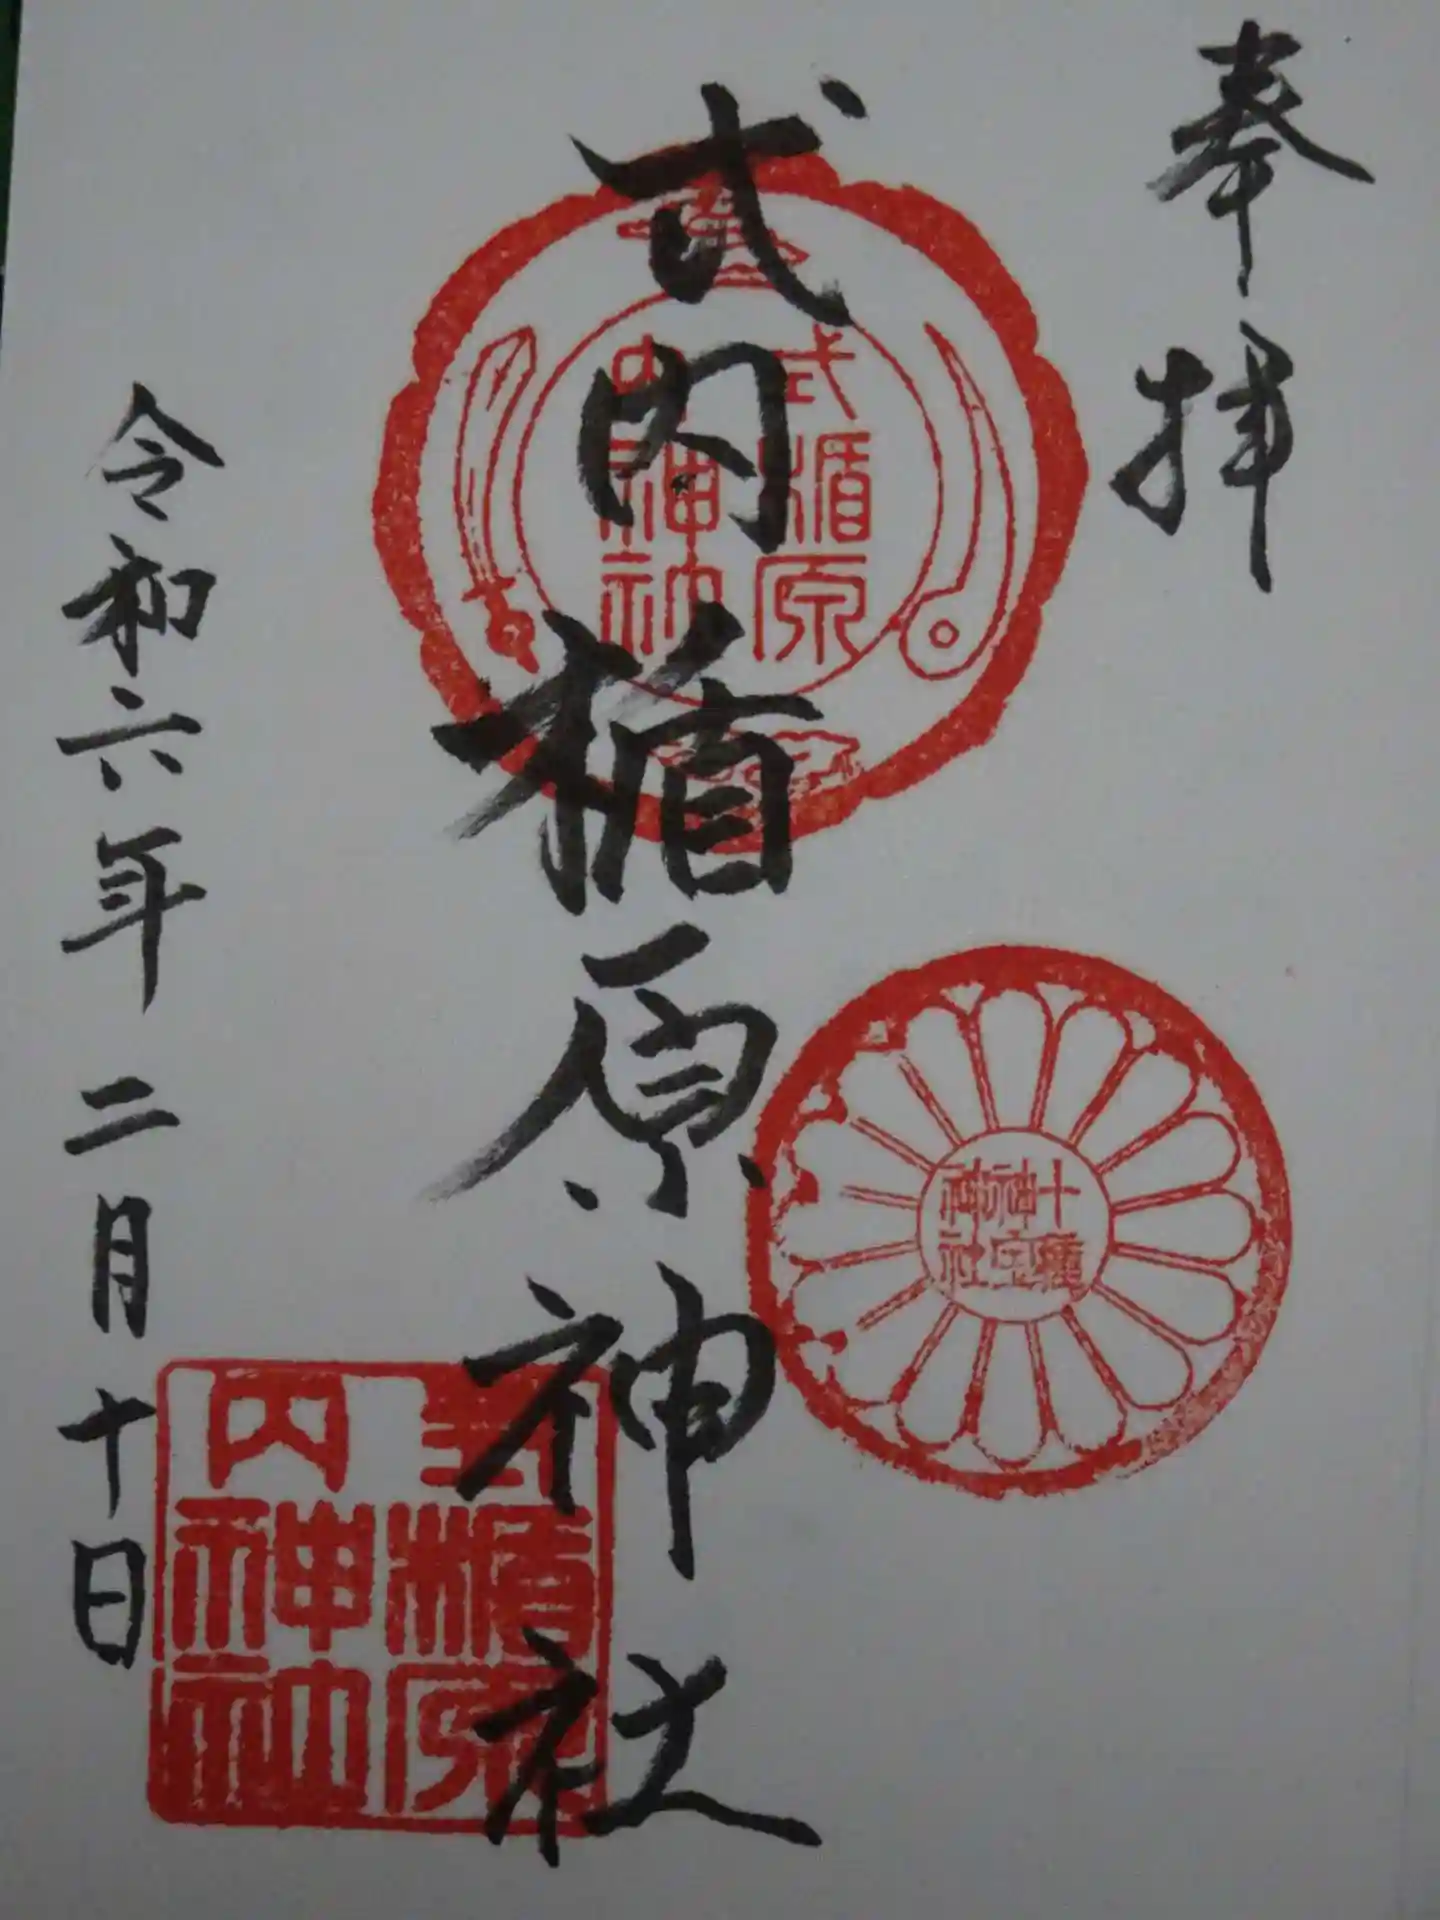 奉拝
式内楯原神社
令和六年二月十日
式楯原
内神社
十種
神宝
神社
式楯原
内神社